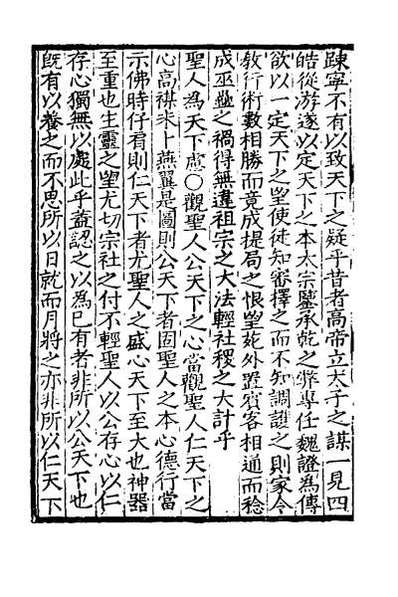 踈寧不有以致天下之疑乎昔者高帝立太子之謀一見四
皓從游遂以定天下之本太宗鑒承乾之弊專任魏證為傅
欲以一定天下之望使徒知審擇之而不知調護之則家令
敎行術數相勝而竟成提局之恨望苑外置賔客相通而稔
成巫蠱之禍得無違祖宗之大法輕社稷之大計乎
聖人為天下慮○觀聖人公天下之心當觀聖人仁天下之
心高禖未卜燕翼是圖則公天下者固聖人之本心德行當
示佛時仔肩則仁天下者尤聖人之盛心天下至大也神器
至重也生靈之望尤切宗社之付不輕聖人以公存心以仁
存心獨無以處此乎蓋認之以為已有者非所以公天下也
旣有以養之而不思所以日就而月將之亦非所以仁天下